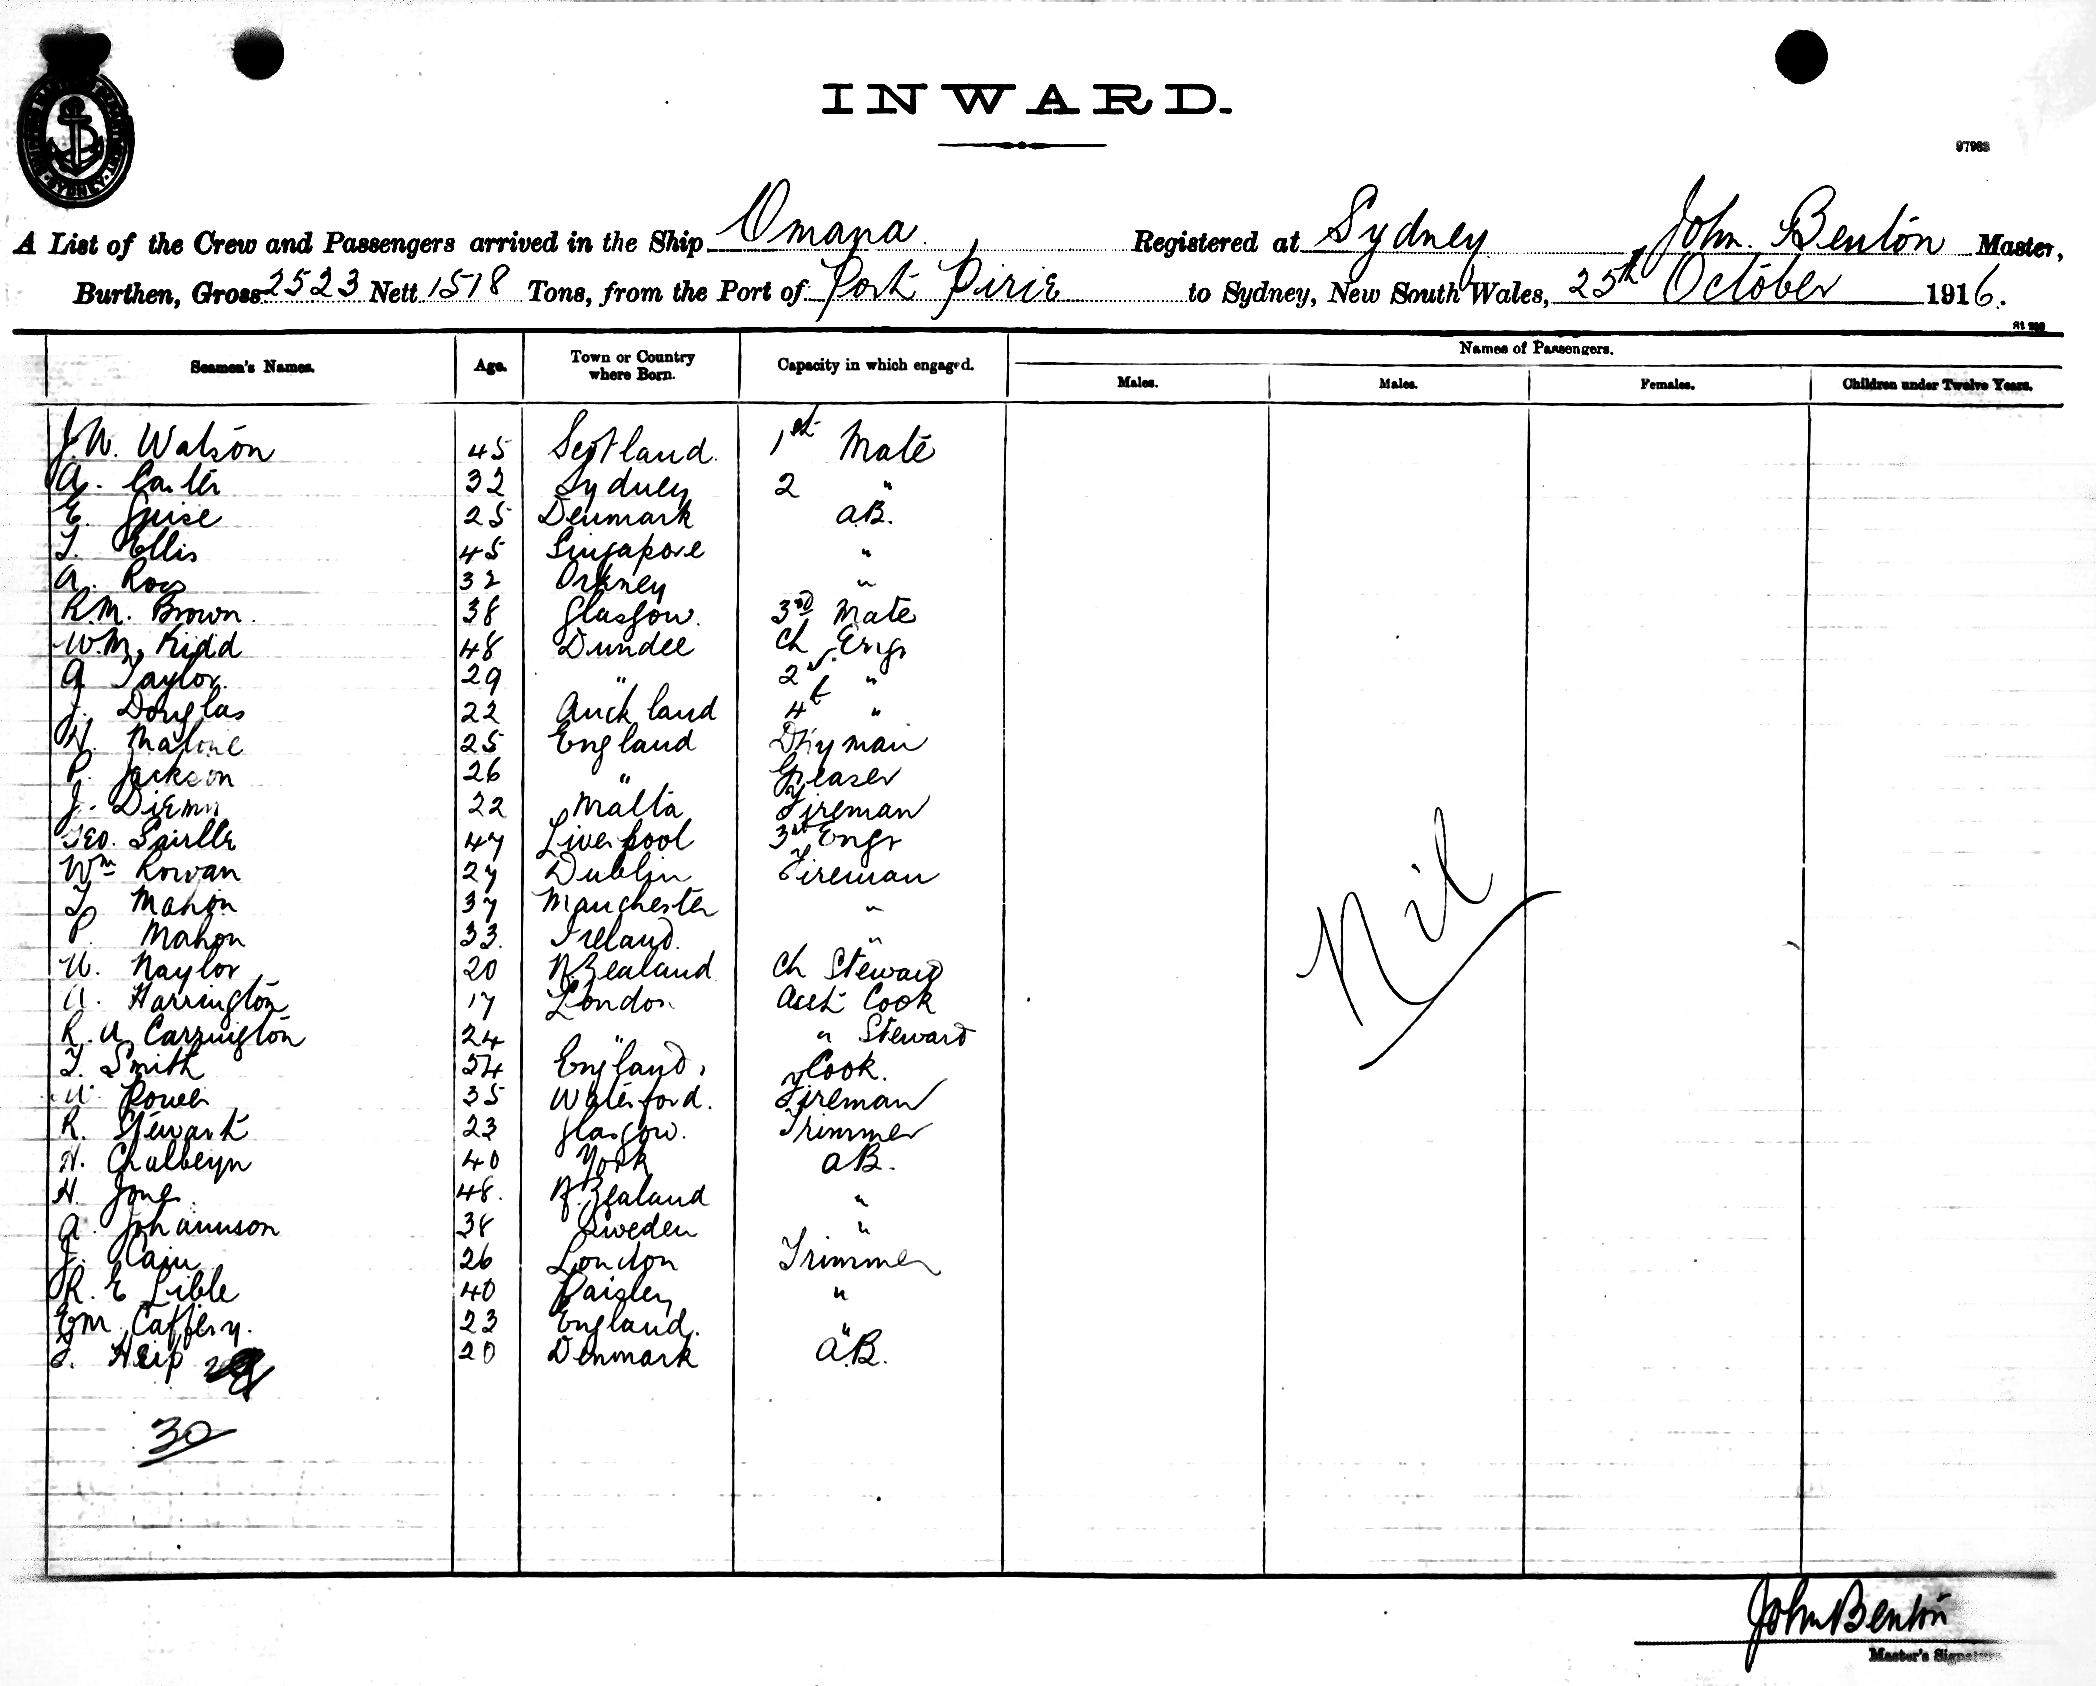 INWARD.
97963
A List of the Crew and Passengers arrived in the Ship Omana Registered at Sydney, John Benton Master,
Burthen, Gross 2523 Nett 1518 Tons, from the Port of Port Pirie to Sydney, New South Wales, 25th October 1916.
Seamen's Names. Age. Town or Country where Born. Capacity in which engaged. Names of Passengers.
Males. Males. Females. Children under Twelve Years.
J.W. Watson 45 Scotland. 1st Mate
A. Carter 32 Sydney 2 "
E. Guise 25 Denmark a.B.
T. Ellis 45 Singapore "
A. Ross 32 Orkney "
R.M. Brown. 38 Glasgow. 3rd Mate
W.M. Kidd 48 Dundee Ch Engr
A Taylor. 29 " 2d. "
J. Douglas 22 Auckland 4th "
H. Malone 25 England Dkyman
P. Jackson 26 " Greaser
J. 22 Malta Fireman
Geo. 47 Liverpool 3rd Engr
Wm Rowan 27 Dublin Fireman
T. Mahon 37 Manchester "
P. Mahon 33. Ireland. "
W. Naylor 20 N. Zealand Ch Steward
A. Harrington 17 London Asst Cook
R.A. Carrington 24 " " Steward
T. Smith 54 England. Cook.
W. Power 35 Waterford. Fireman
R. Stewart 23 Glasgow. Trimmer
H. 40 York a.B.
H. Jones. 48. N. Zealand "
A. Johannson 38 Sweden "
J. Cain 26 London Trimmer
R. E Lible 40 Paisley "
E M. Caffery. 23 England. "
T. Heip 20 Denmark a.B.
30
Nil
John Benton
Master's Signature